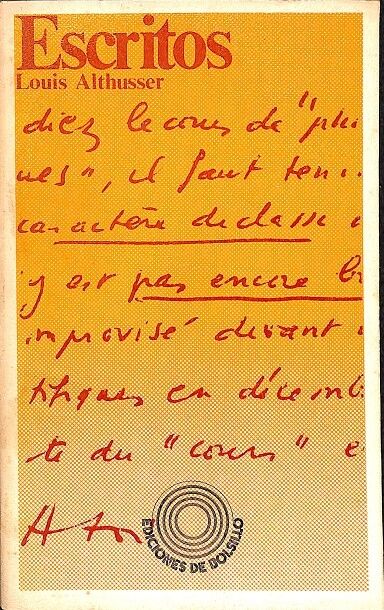 Escritos
Louis Althusser
diez le cours de "phi
ues", il faut ten
caractère de classe
y est pas encore
improvisé devant
tifiques en décemb
te du "cours" e
EDICIONES DE BOLSILLO